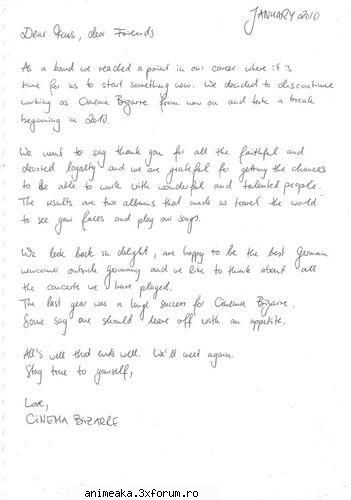 JANUARY 2010
Dear Fans, dear Friends
As a band we reached a point in our career where it is
time for us to start something new. We decided to discontinue
working as Cinema Bizarre from now on and take a break
beginning in 2010.
We want to say thank you for all the faithful and
devoted loyalty and we are grateful for getting the chances
to be able to work with wonderful and talented people.
The results are two albums that made us travel the world
to see your faces and play our songs.
We look back in delight, are happy to be the best German
newcomer outside Germany and we like to think about all
the concerts we have played.
The last year was a huge success for Cinema Bizarre.
Some say one should leave off with an appetite.
All's well that ends well. We'll meet again.
Stay true to yourself,
Love,
CINEMA BIZARRE
animeaka.3xforum.ro